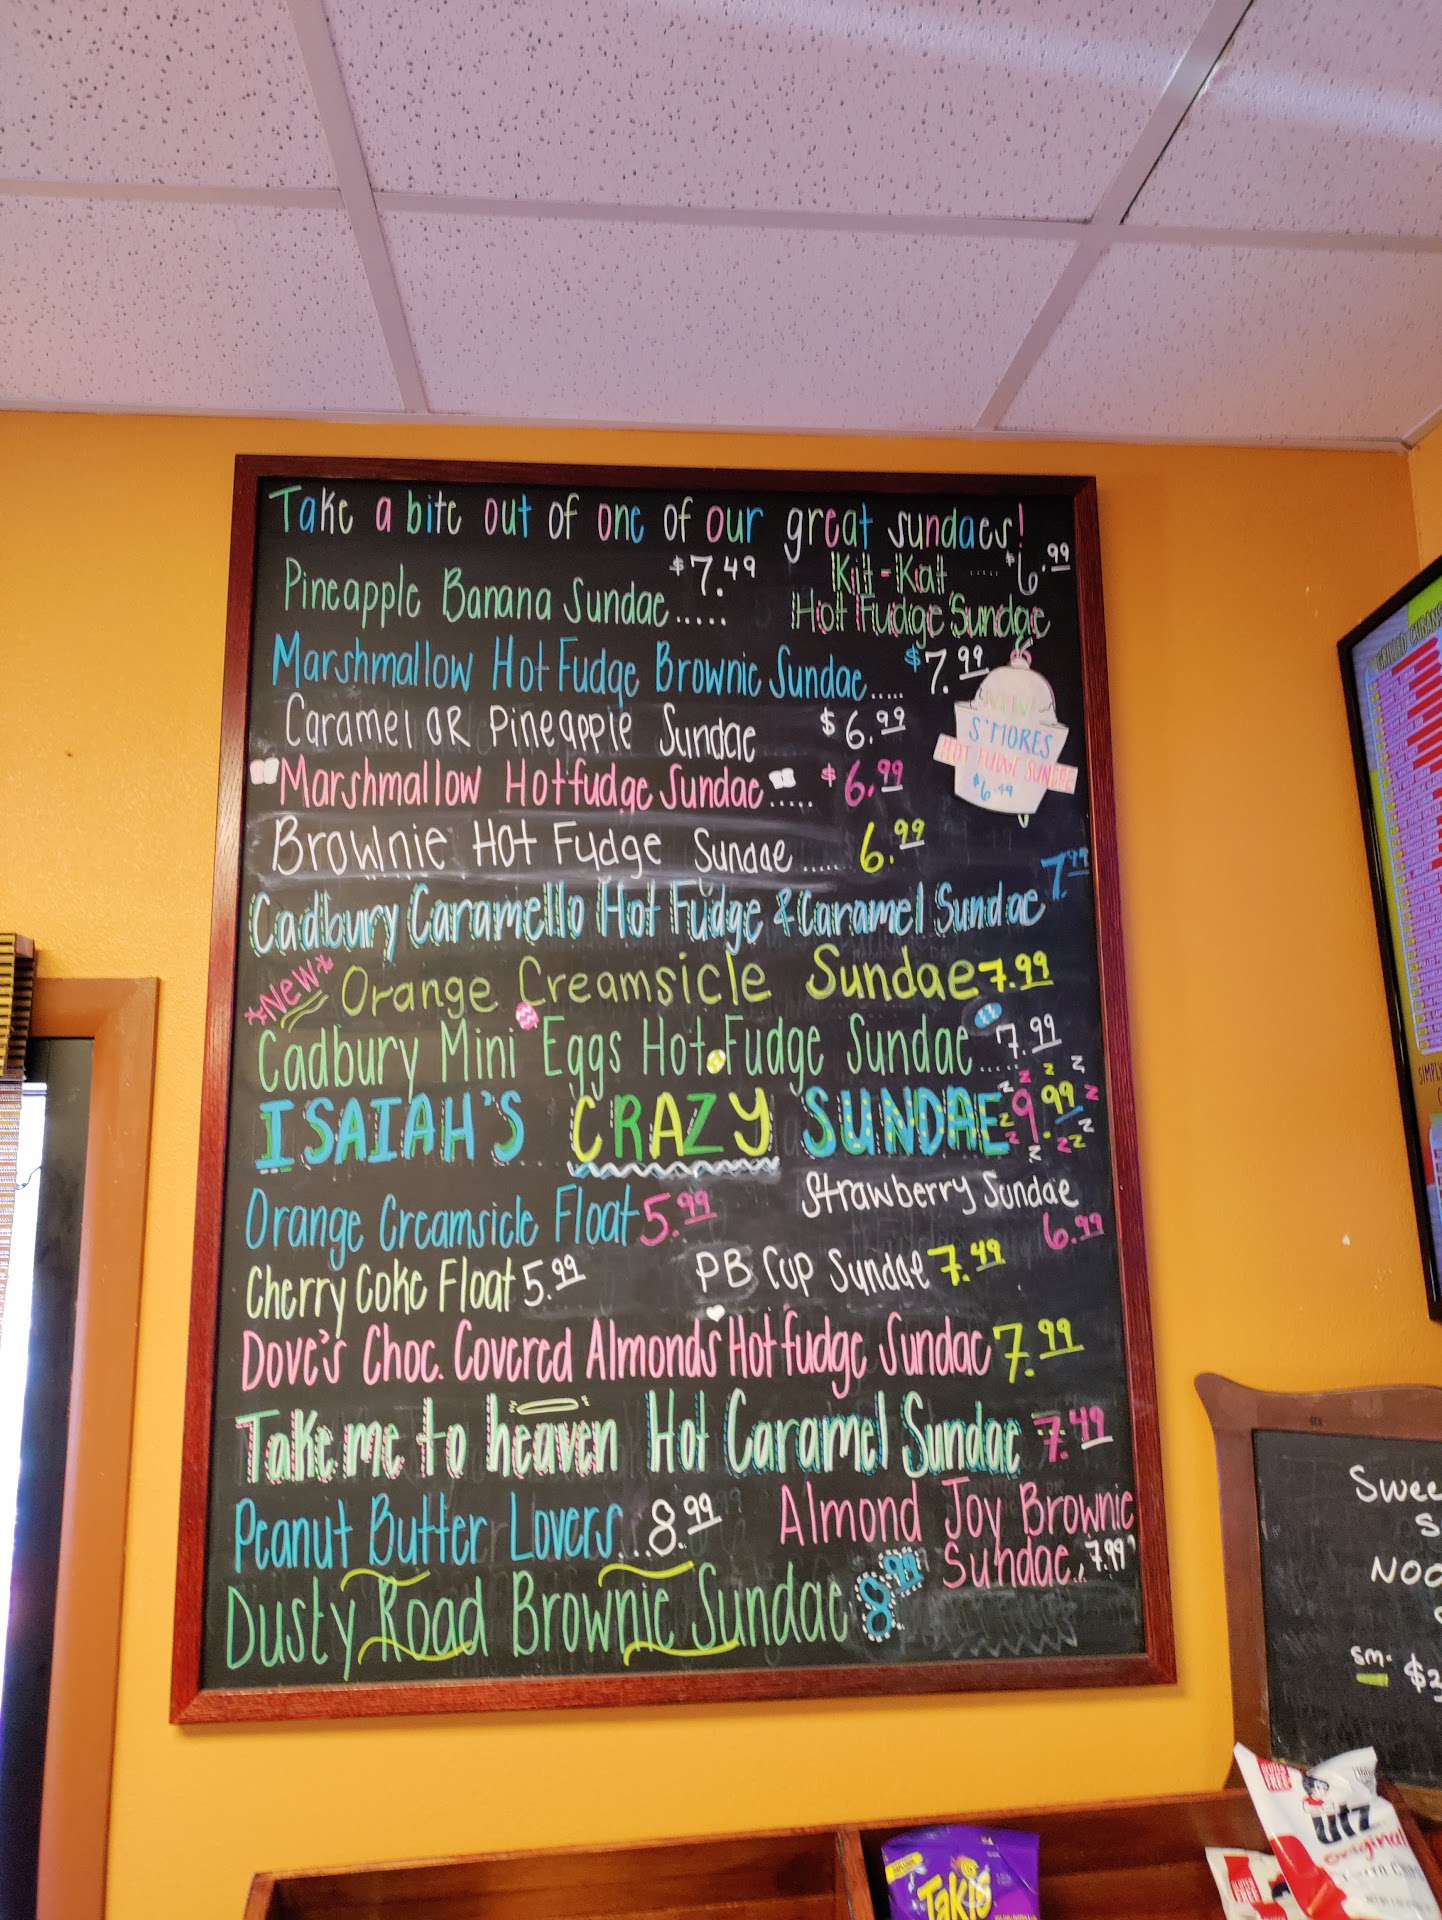 Take a bite out of one of our great sundaes!
Pineapple Banana Sundae..... $7.49
Kit-Kat ..... $6.99
Hot Fudge Sundae
Marshmallow Hot Fudge Brownie Sundae..... $7.99
Caramel OR Pineapple Sundae $6.99
S'MORES
HOT FUDGE SUNDAE
$6.49
Marshmallow Hotfudge Sundae..... $6.99
Brownie Hot Fudge Sundae..... 6.99
Cadbury Caramello Hot Fudge & Caramel Sundae 7.99
*New* Orange Creamsicle Sundae 7.99
Cadbury Mini Eggs Hot Fudge Sundae.... 7.99
ISAIAH'S CRAZY SUNDAE 9.99
z z z z z z z z z z
Orange Creamsicle Float 5.99
Strawberry Sundae
6.99
Cherry Coke Float 5.99
PB Cup Sundae 7.49
Dove's Choc. Covered Almonds Hot fudge Sundae 7.99
Take me to heaven Hot Caramel Sundae 7.49
Peanut Butter Lovers...8.99
Almond Joy Brownie
Sundae..7.99
Dusty Road Brownie Sundae 8.99
GRILLED CUBANS
SIMPLY
Swee
S
NOO
sm. $3
Takis
GLUTEN FREE
utz
original